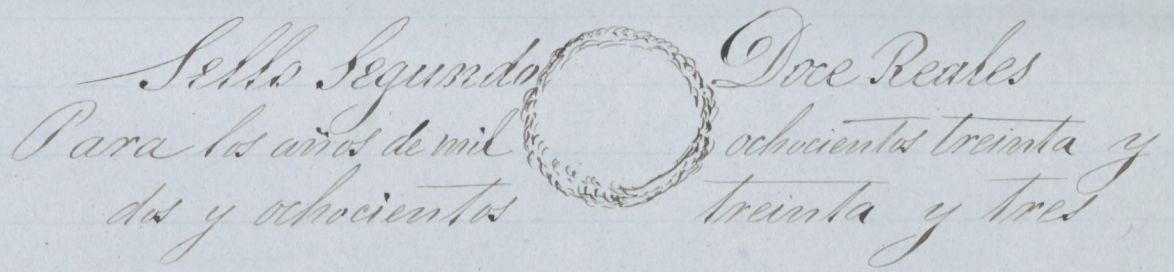 Sello Segundo Doce Reales
Para los años de mil ochocientos treinta y
dos y ochocientos treinta y tres